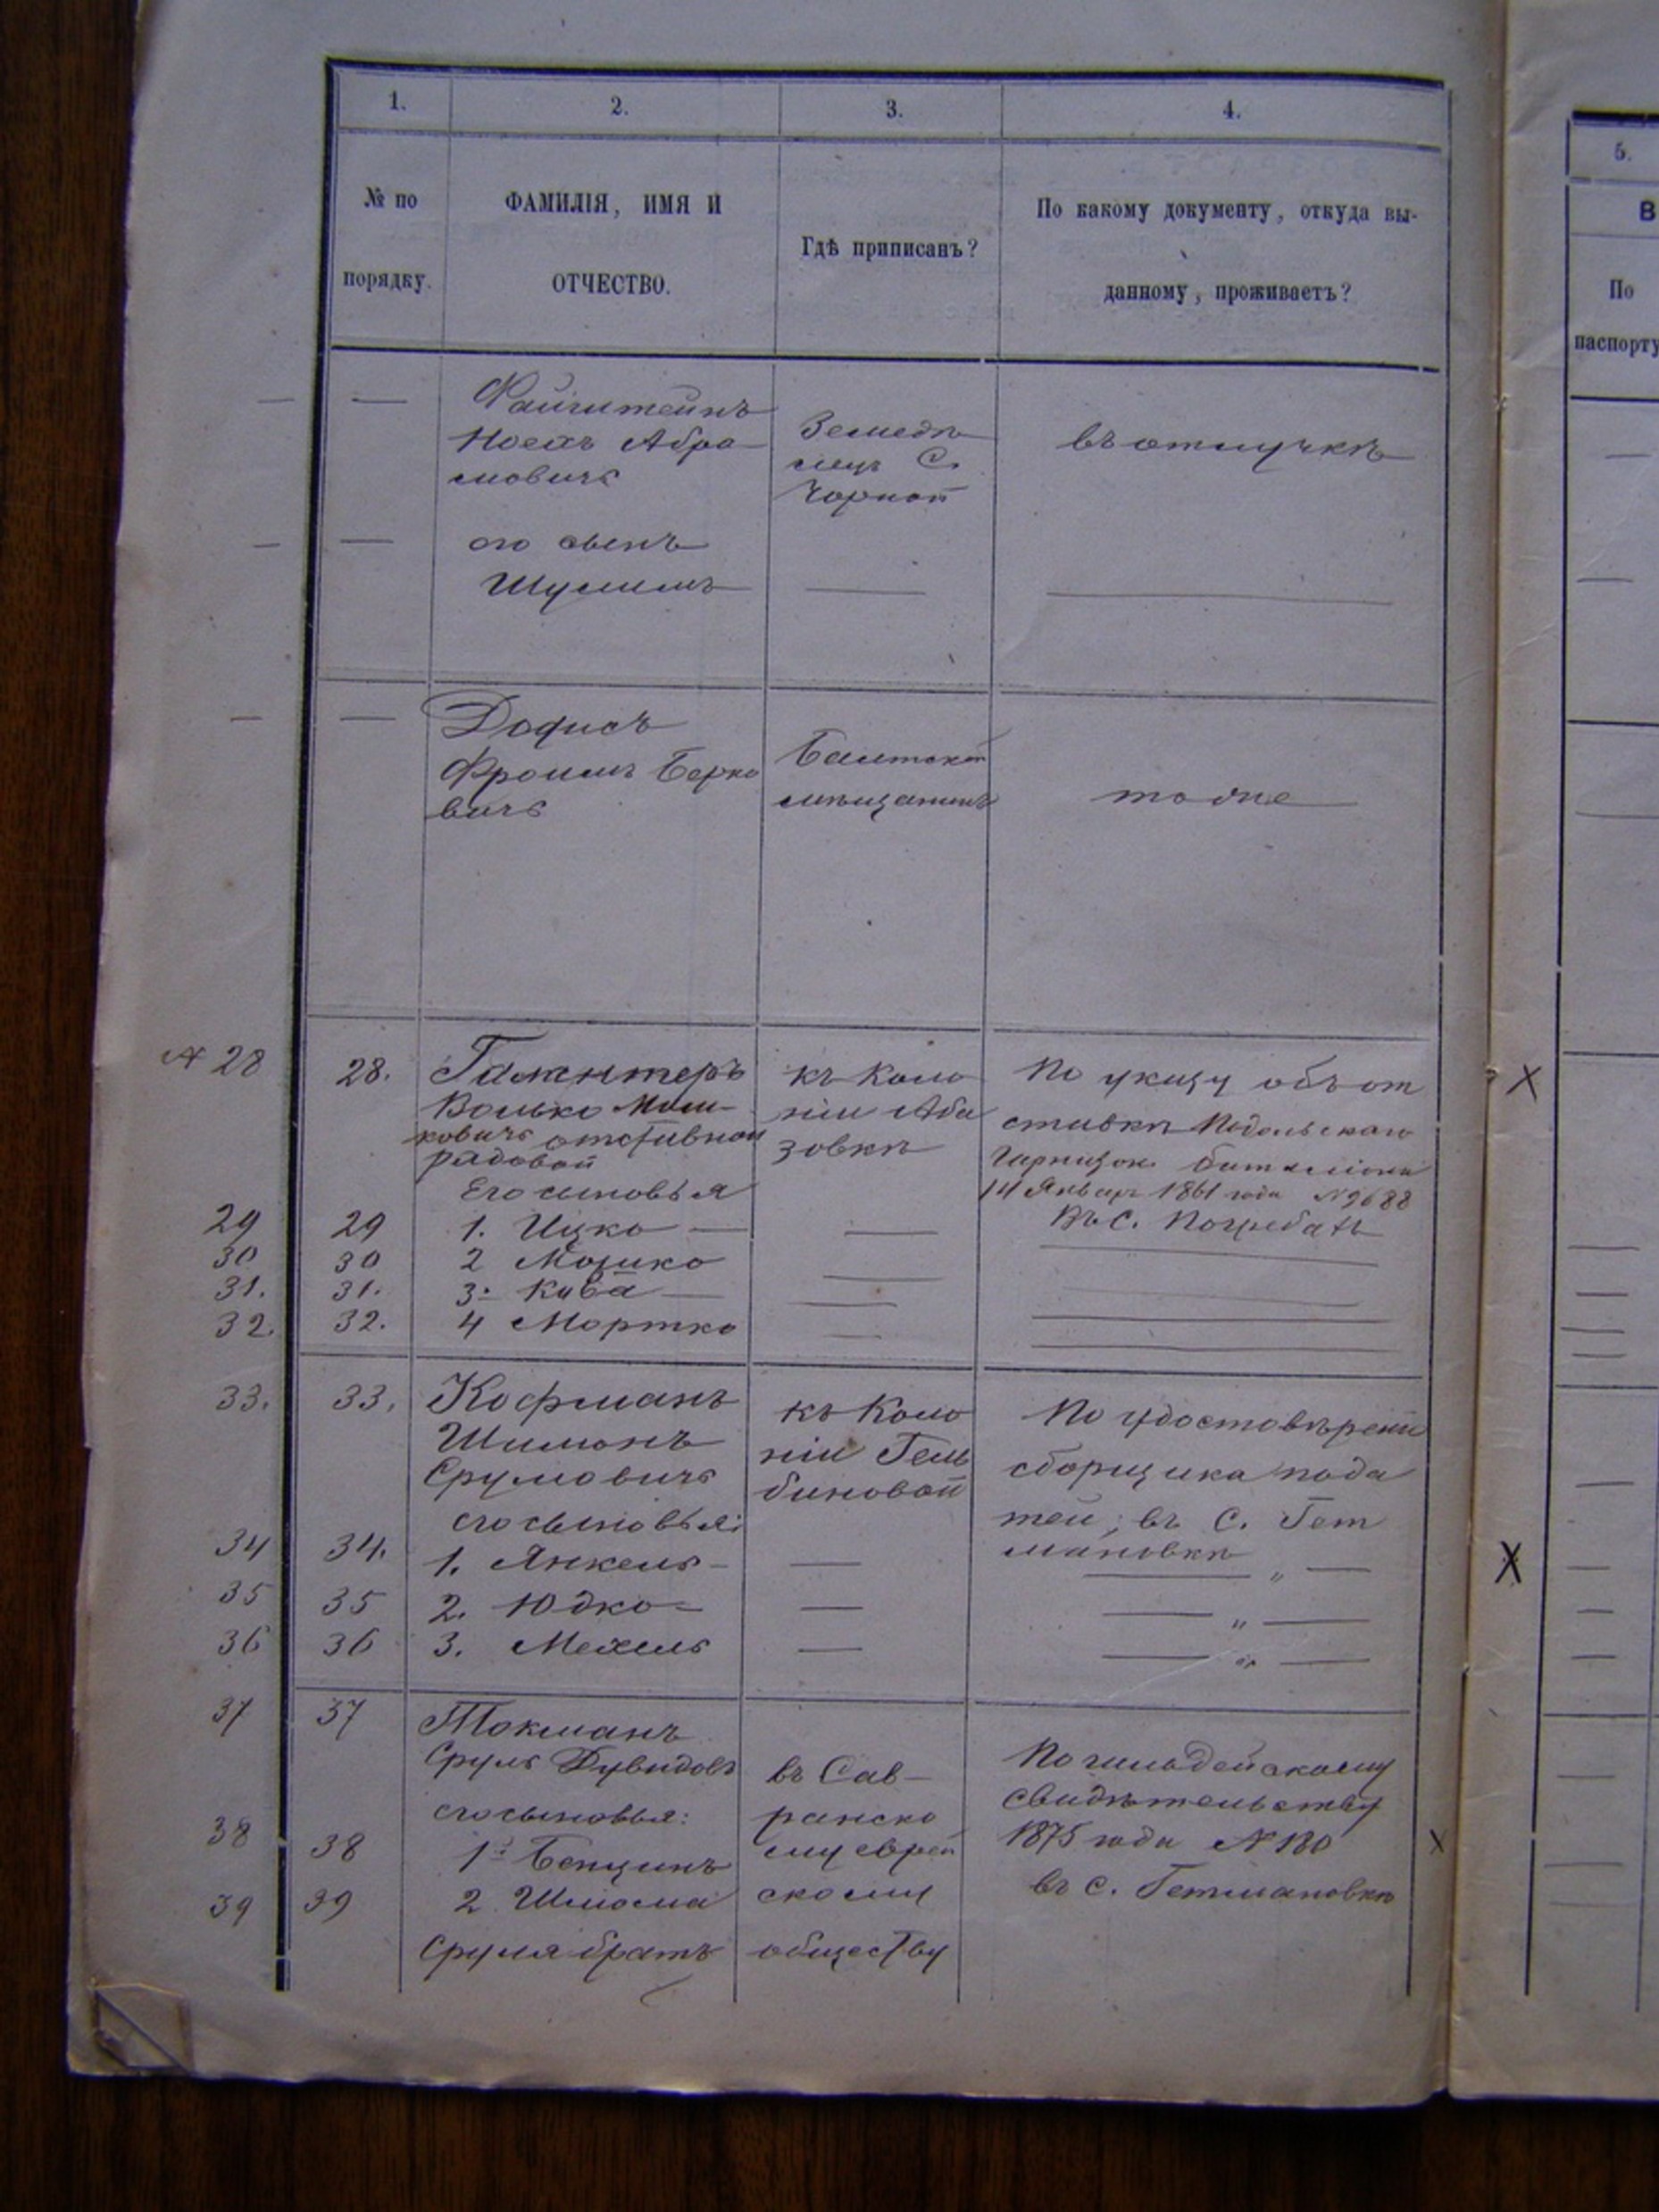 1. 2. 3. 4.
№ по порядку.
ФАМИЛІЯ, ИМЯ И
ОТЧЕСТВО.
Гдѣ приписанъ?
По какому документу, откуда вы-
данному, проживаетъ?
5.
В
По
паспорту
— —
Файнштейнъ
Носахъ Абра-
мовичъ
Земедѣ
лецъ С.
Чорной
въ отлучкѣ
— —
его сынъ
Шулимъ
— —
Дофисъ
Фроимъ Берко
вичъ
Балтской
мѣщанинъ
тоже
№ 28
28.
Галантеръ
Волько Мош-
ковичъ отставной
рядовой
къ Коло
ніи Аба
зовкѣ
По указу объ от
ставкѣ Подольскаго
Гарнизон. баталіона
14 Январ. 1861 года № 9688
Въ С. Погребахъ
Его сыновья
29 29 1. Ицко —
30 30 2 Мошко
31. 31. 3. Кива —
32. 32. 4 Мортко
33. 33.
Кофманъ
Шимонъ
Срумовичъ
къ Коло
ніи Гель
биновой
По удостовѣрени
сборщика пода
тей, въ С. Гет
мановкѣ
его сыновья:
34 34. 1. Янкель — — — " —
35 35 2. Юдко — — — " —
36 36 3. Мехель — — " —
37 37
Токманъ
Сруль Дувидовъ
въ Сав-
ранско
му еврей
скому
обществу
По гильдейскому
свидѣтельству
1875 года № 130
въ с. Гетмановкѣ
его сыновья:
38 38 1. Бенционъ
39 39 2 Шлома
Сруля братъ